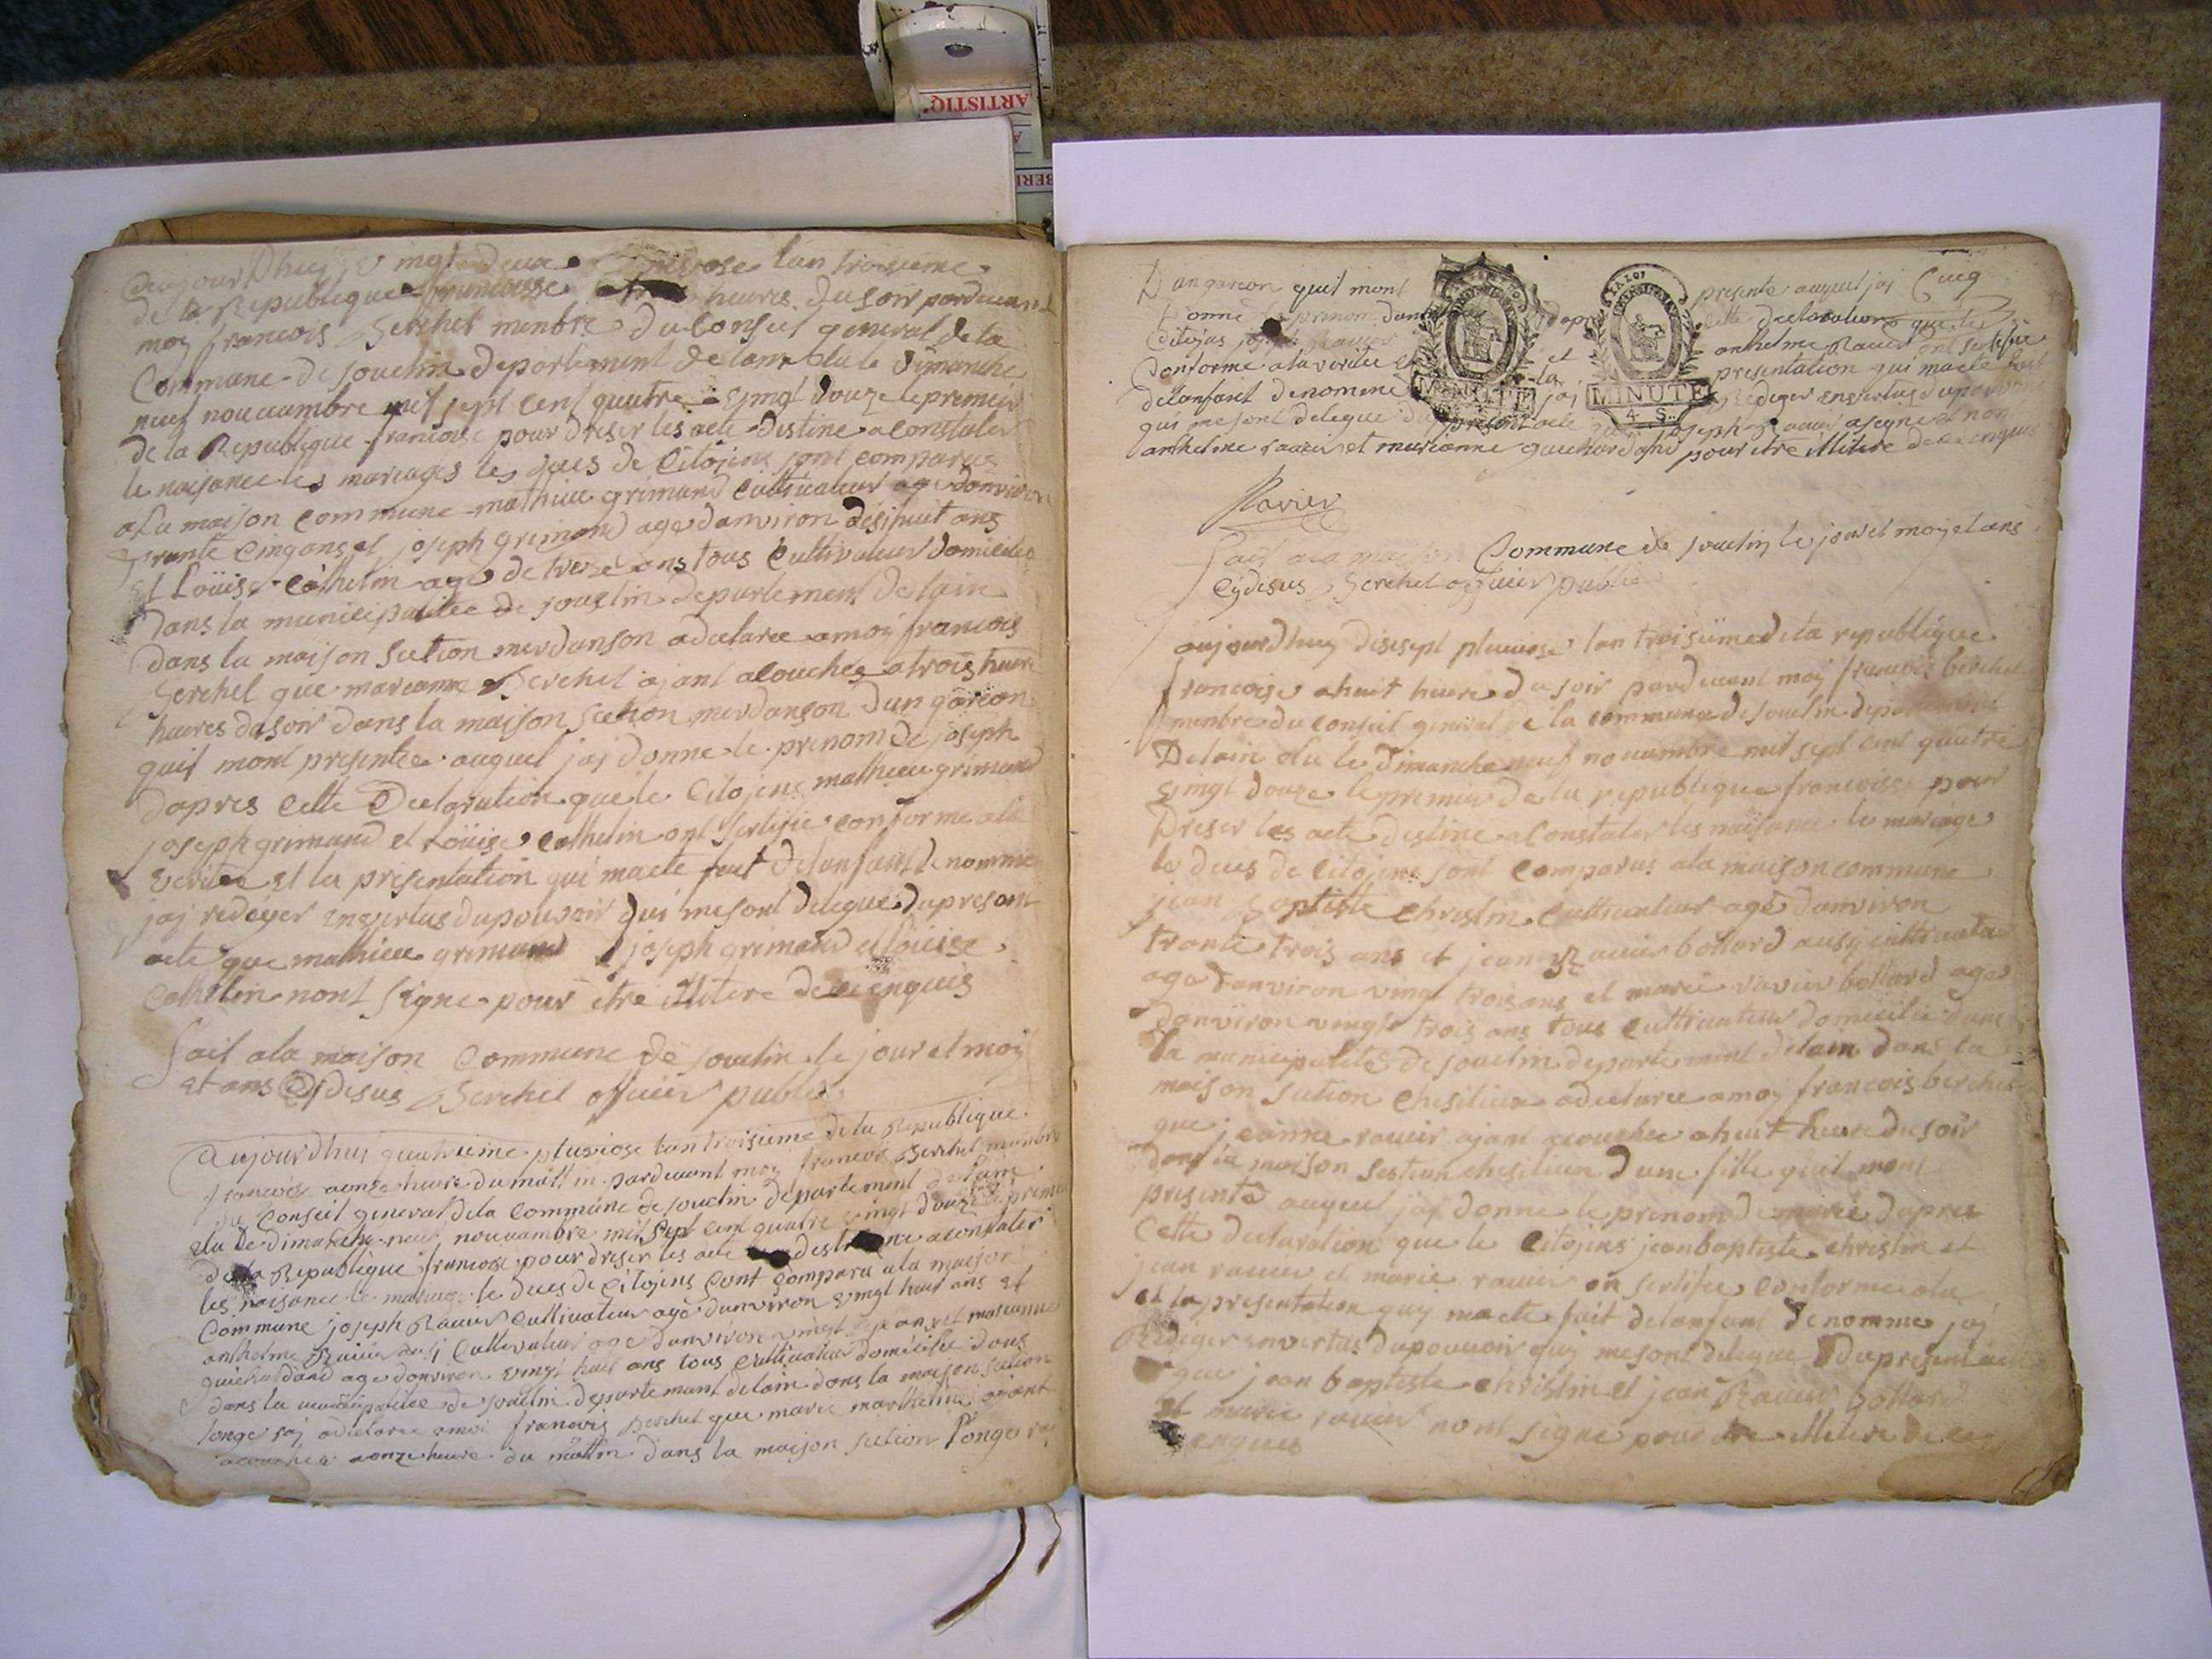 aujourDhuy vingt deux nivose lan troisieme
de la Republique francoisse heures du soir pardevant
moy francois Berchet menbre du Conseil general de la
Commune de souclin departement de lain elu le Dimanche
neuf nouvambre mil sept cent quatre vingt douze le premier
de la Republique francoise pour dreser les acte destine a constater
le naisance les mariages les deces de Citojens sont comparus
a la maison commune mathieu grimand cultivateur age danviron
trante cinq ans et joseph grimand age danviron disihuit ans
et Loüise Cathelin age de treze ans tous Cultivateur domicilie
Dans la municipalitee de souclin departement de lain
Dans la maison section merdanson a declaree a moy francois
Berchet que marianne Berchet ajant acouchee a trois heure
heures du soir dans la maison section merdanson dun garcon
quil mont presentee auquel jaj donne le prenom de joseph
dapres cette Declaration que le Citojens mathieu grimand
joseph grimand et Loüise Cathelin ont sertifie conforme a la
veritee et la presentation qui macte fait de lanfant denomme
jaj redeger anvertus du pouvoir qui me sont delegue du presant
acte que mathieu grimand joseph grimand et loüise
Cathelin nont signe pour etre illitere de ce enquis
fait a la maison Commune de souclin le jour et moy
et ans Cydesus Berchet officier public
Aujourdhuj quatrieme pluviose lan troisieme de la Republique
francoise a onze heure du mattin pardevant moy francois Berchet menbre
du Conseil general de la Commune de souclin departement de lain
elu le dimanche neuf nouvambre mil sept cent quatre vingt douze le premier
de la Republique francoise pour dreser les acte destine a constater
les naisance le mariage le deces de Citojens sont comparu a la maison
Commune joseph Ravier Cultivateur age danviron vingt huit ans et
anthelme Ravier ausj Cultivateur age danviron vingt ans et marianne
age danviron vingt huit ans tous Cultivateur domicilie dans
dans la municipalitee de souclin departemant de lain dans la maison section
longe raj a declaree a moi francois Berchet que marie marthelin ajant
acouchee a onze heure du mattin dans la maison section longe raj
Dun garcon quil mont presente auquel jaj
Donne le prenom dapres cette declaration que le
Citojens joseph Ravier anthelme Ravier ont sertifie
Conforme a la veritee et et la presentation qui macte fait
de lanfant denomme jaj rediger anvertus du pouvoir
qui me sont delegue du presant acte que joseph Ravier a signe et non
anthelme ravier et marianne pour etre illitere de ce enquis
Ravier
Fait a la maison Commune de souclin le jour et moy et ans
Cydesus Berchet officier public
aujourdhuy disesept pluviose lan troisiëme de la republique
francoise a huit heure du soir pardevant moy francois berchet
menbre du conseil general de la commune de souclin departement
De lain elu le Dimanche neuf nouvambre mil sept cent quatre
vingt douze le premier de la republique francoisse pour
Dreser les acte destine a Constater les naisance le mariage
le deces de Citojens sont Comparus a la maison commune
jean Baptiste Christin Cultivateur age danviron
trante trois ans et jean Ravier bollard ausy cultivateur
age danviron vingt trois ans et marie ravier bollard age
danviron vingt trois ans tous Cultivateur domicilie dans
la municipalite de souclin departement de lain dans la
maison section Chesilieu a declaree a moy francois berchet
que jeanne ravier ajant acouchee a huit heure du soir
dans la maison section chesilieu dune fille quil mont
presente auquel jaj donne le prenom de marie dapres
Cette declaration que le Citojens jean baptiste christin et
jean ravier et marie ravier on sertifee conforme a la
et la presentation quy macte fait de lanfant denomme jaj
Rediger anvertus du pouvoir quy me sont delegue du present acte
que jean baptiste christin et jean Ravier bollard
et marie ravier nont signe pour etre illitere de ce
enquis
MINUTE
MINUTE
4. S.
ARTISTIQ